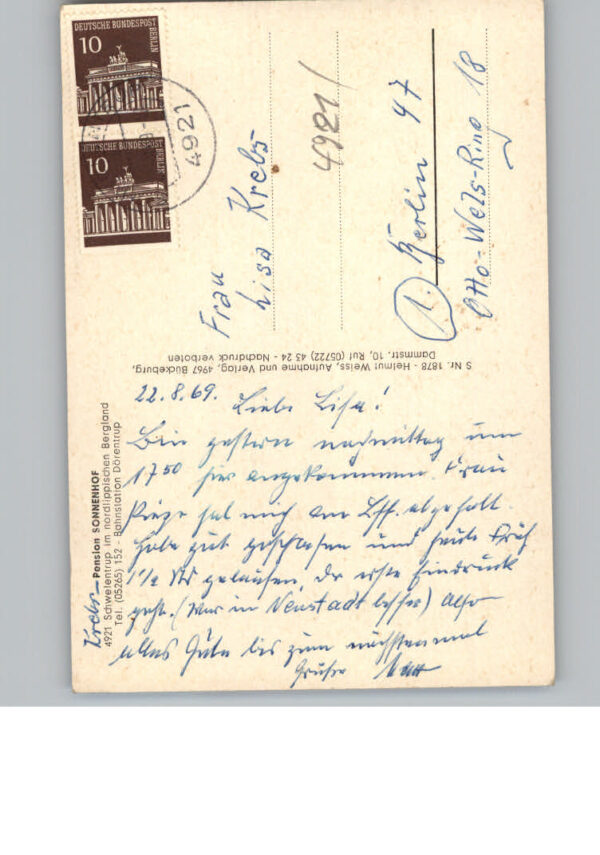 DEUTSCHE BUNDESPOST
BERLIN
10
DEUTSCHE BUNDESPOST
BERLIN
10
4921
4921/
Frau
Lisa Krebs
1 Berlin 47
Otto-Wels-Ring 18
S Nr. 1878 - Helmut Weiss, Aufnahme und Verlag, 4967 Bückeburg,
Dammstr. 10, Ruf (05722) 43 24 - Nachdruck verboten
Krebs – Pension SONNENHOF
4921 Schwelentrup im nordlippischen Bergland
Tel. (05265) 152 - Bahnstation Dörentrup
22.8.69. Liebe Lisa!
Bin gestern nachmittag um
17 50 hier angekommen. Frau
hat mich am Bhf. abgeholt.
Habe gut geschlafen und heute früh
1 1/2 Std gelaufen, der erste Eindruck
geht. (War in Neustadt besser) Also
alles Gute bis zum nächstenmal
Grüße